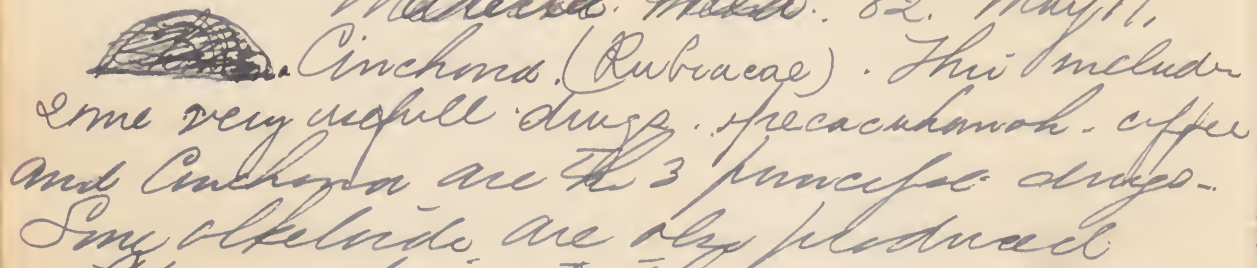 Materia Med. 82. May 11,
Cinchona. (Rubiacae). This include
some very usefull drugs. Ipecacuhanah. coffee
and Cinchona are the 3 principal drugs-
Some alkeloids are also produced